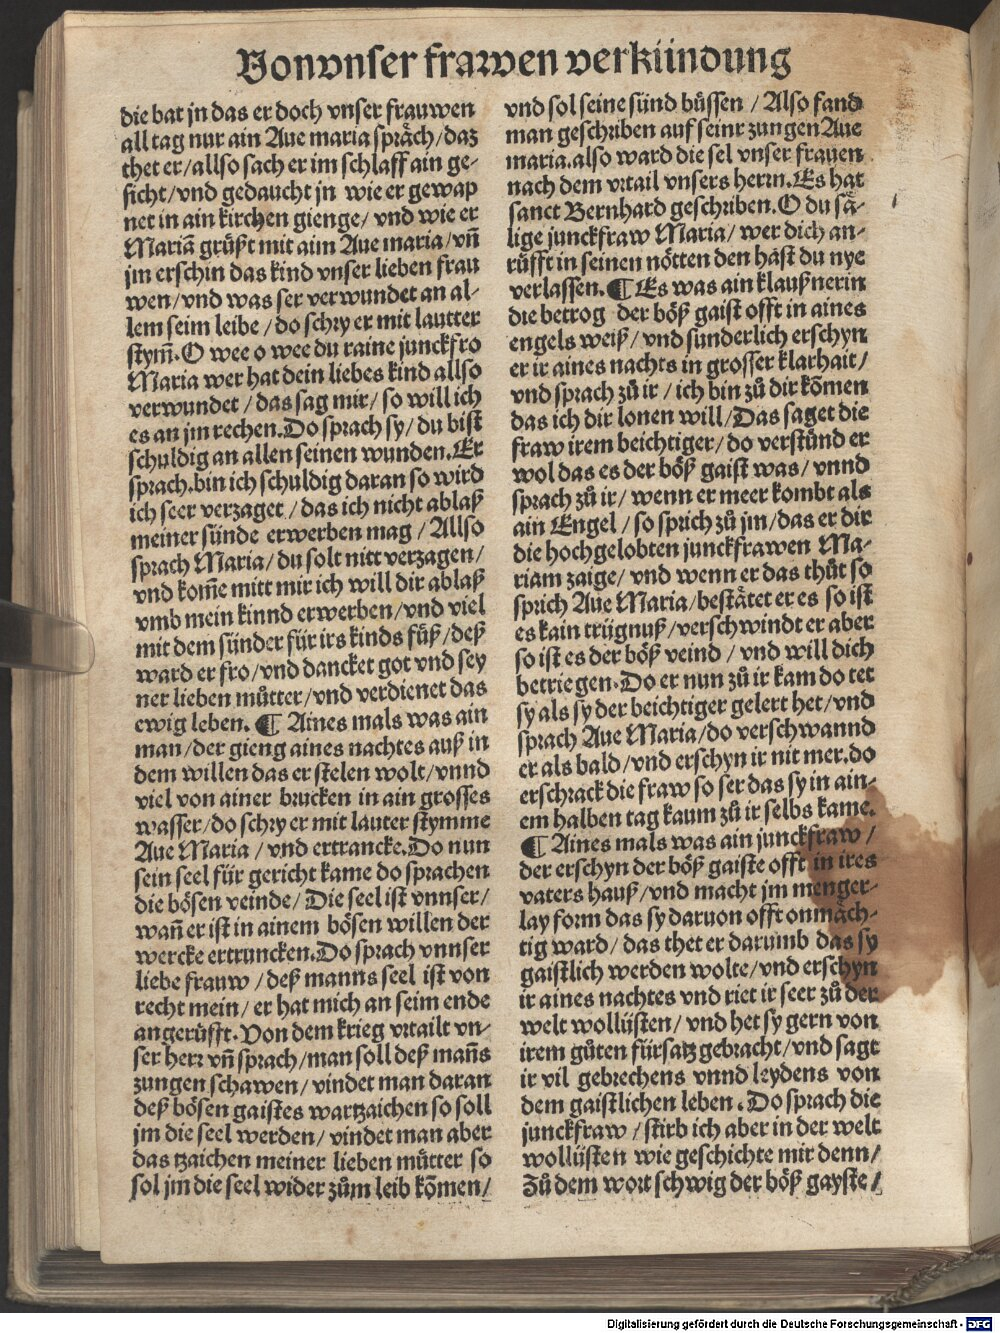 Von vnser frawen verkündung
die bat jn das er doch vnser frauwen
all tag nur ain Aue maria spräch/daz
thet er/allso sach er im schlaff ain ge-
sicht/vnd gedaucht jn wie er gewap
net in ain kirchen gienge/ vnd wie er
Mariā grüßt mit aim Aue maria/vñ
jm erschin das kind vnser lieben frau
wen/vnd was ser verwundet an al-
lem seim leibe/do schry er mit lautter
stym̄. O wee o wee du raine junckfro
Maria wer hat dein liebes kind allso
verwundet/das sag mir/so will ich
es an jm rechen. Do sprach sy/du bist
schuldig an allen seinen wunden. Er
sprach. bin ich schuldig daran so wird
ich seer verzaget/das ich nicht ablaß
meiner sünde erwerben mag/Allso
sprach Maria/du solt nitt verzagen/
vnd kom̄e mitt mir ich will dir ablaß
vmb mein kinnd erwerben/vnd viel
mit dem sünder für irs kinds füß/deß
ward er fro/vnd dancket got vnd sey
ner lieben můtter/vnd verdienet das
ewig leben. ¶ Aines mals was ain
man/der gieng aines nachtes auß in
dem willen das er stelen wolt/vnnd
viel von ainer brucken in ain grosses
wasser/do schry er mit lauter stymme
Aue Maria/vnd ertrancke. Do nun
sein seel für gericht kame do sprachen
die bösen veinde/Die seel ist vnnser/
wañ er ist in ainem bösen willen der
wercke ertruncken. Do sprach vnnser
liebe frauw/deß manns seel ist von
recht mein/er hat mich an seim ende
angerüfft. Von dem krieg vrtailt vn-
ser herr vñ sprach/man soll deß mañs
zungen schawen/vindet man daran
deß bösen gaistes wartzaichen so soll
jm die seel werden/vindet man aber
das tzaichen meiner lieben můtter so
sol jm die seel wider zům leib kōmen/
vnd sol seine sünd büssen/Also fand
man geschriben auf seinr zungen Aue
maria. also ward die sel vnser frauen
nach dem vrtail vnsers herrn. Es hat
sanct Bernhard geschriben. O du sä-
lige junckfraw Maria/wer dich an-
rüfft in seinen nötten den hast du nye
verlassen. ¶ Es was ain klaußnerin
die betrog der böß gaist offt in aines
engels weiß/vnd sunderlich erschyn
er ir aines nachts in grosser klarhait/
vnd sprach zů ir/ich bin zů dir kōmen
das ich dir lonen will/Das saget die
fraw irem beichtiger/do verstůnd er
wol das es der böß gaist was/vnnd
sprach zů ir/wenn er meer kombt als
ain Engel/so sprich zů jm/das er dir
die hochgelobten junckfrawen Ma-
riam zaige/vnd wenn er das thůt so
sprich Aue Maria/bestätet er es so ist
es kain trügnuß/verschwindt er aber
so ist es der böß veind/vnd will dich
betriegen. Do er nun zů ir kam do tet
sy als sy der beichtiger gelert het/vnd
sprach Aue Maria/do verschwannd
er als bald/vnd erschyn ir nit mer. do
erschrack die fraw so ser das sy in ain-
em halben tag kaum zů ir selbs kame.
¶ Aines mals was ain junckfraw/
der erschyn der böß gaiste offt in ires
vaters hauß/vnd macht jm menger-
lay form das sy daruon offt onmäch-
tig ward/das thet er darumb das sy
gaistlich werden wolte/vnd erschyn
ir aines nachtes vnd riet ir seer zů der
welt wollüsten/vnd het sy gern von
irem gůten fürsatz gebracht/vnd sagt
ir vil gebrechens vnnd leydens von
dem gaistlichen leben. Do sprach die
junckfraw/stirb ich aber in der welt
wollüsten wie geschichte mir denn/
Zů dem wort schwig der böß gayste/
Digitalisierung gefördert durch die Deutsche Forschungsgemeinschaft - DFG